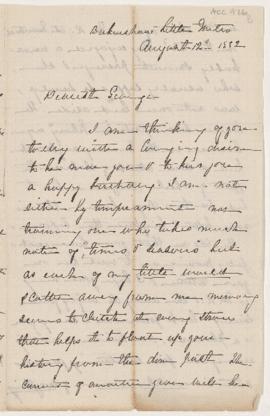 Little Metis
August 12th 1882
Dearest George
I am thinking of you
to day with a longing desire
to be near you & to kiss you
a happy birthday. I am not
either by temperament nor
training one who takes much
note of times & seasons but
as each of my little world
scatter away from me memory
seems to clutch at every
that helps it to float up your
history from the dim past. The
current of